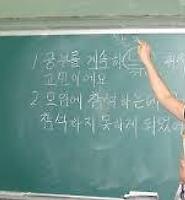 1 공부를 계속하
고민이에요
2 모임에 참석하는데
참석하지 못하게 되었어